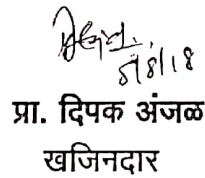 5/8/18
प्रा. दिपक अंजळ
खजिनदार